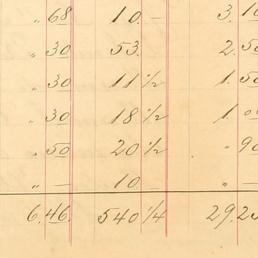 „ 68 10 – 3.10
„ 30 53. 2.50
„ 30 11 1/2 1.50
„ 30 18 1/2 1 00
„ 50 20 1/2 „ 90
„ – 10 „ –
6.46. 540 1/4 29.25